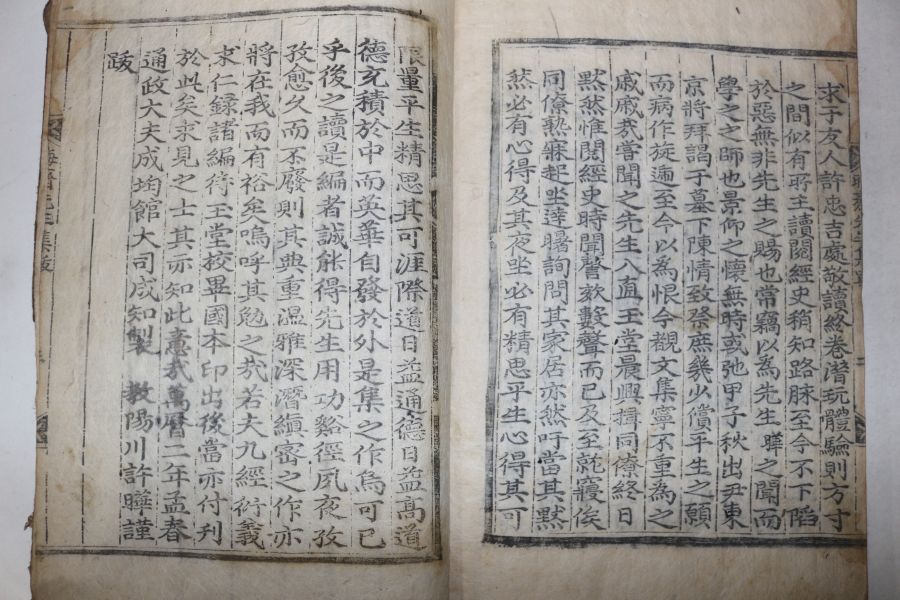 求于友人許忠吉處敬讀終卷潛玩體驗則方寸
之間似有所主讀閱經史稍知路脉至今不下陷
於惡無非先生之賜也常竊以爲先生曄之聞而
學之之師也景仰之懷無時或弛甲子秋出尹東
京將拜謁于墓下陳情致祭庶幾少償平生之願
而病作旋遞至今以爲恨今觀文集寧不重爲之
戚戚哉嘗聞之先生入直玉堂晨興揖同僚終日
默然惟閱經史時聞謦欬數聲而已及至就寢俟
同僚熟寐起坐達曙詢問其家居亦然吁當其默
然必有心得及其夜坐必有精思平生心得其可
限量平生精思其可涯際道日益通德日益高道
德充積於中而英華自發於外是集之作烏可已
乎後之讀是編者誠能得先生用功谿徑夙夜孜
孜愈久而不廢則其典重溫雅深潛縝密之作亦
將在我而有裕矣嗚呼其勉之哉若夫九經衍義
求仁錄諸編待玉堂校畢國本印出後當亦付刊
於此矣求見之士其亦知此意哉萬曆二年孟春
通政大夫成均館大司成知製 敎陽川許曄謹
跋